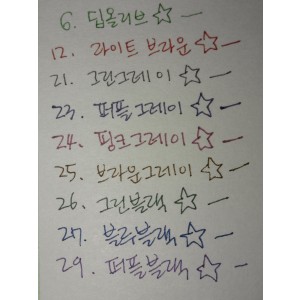 6. 딥올리브 ☆ —
12. 라이트 브라운 ☆ —
21. 그린그레이 ☆ —
23. 퍼플그레이 ☆ —
24. 핑크그레이 ☆ —
25. 브라운그레이 ☆ —
26. 그린블랙 ☆ —
27. 블루블랙 ☆ —
29. 퍼플블랙 ☆ —